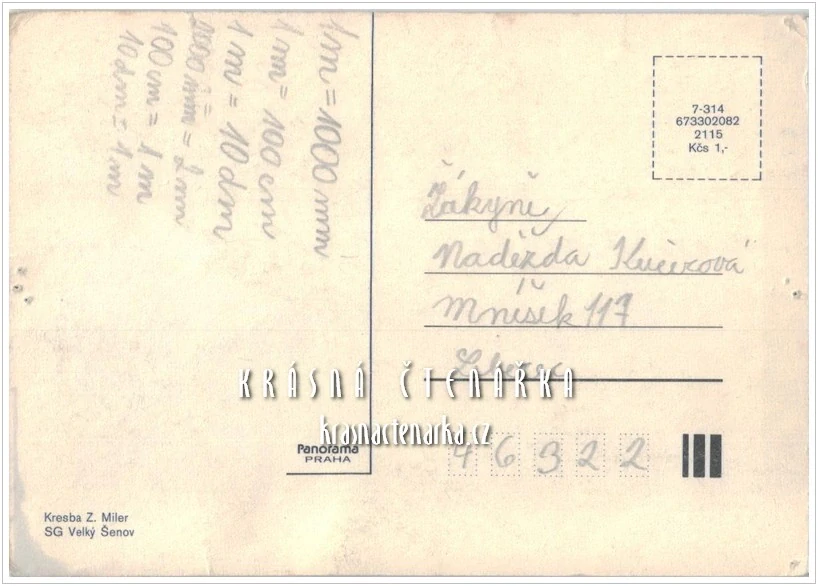 1m = 1000mm
1m = 100cm
1m = 10dm
1000mm = 1m
100cm = 1m
10dm = 1m
7-314
673302082
2115
Kčs 1,-
Žákyně
Naděžda Kučerová
Mníšek 117
Liberec
KRÁSNÁ ČTENÁŘKA
krasnactenarka.cz
46322
Panorama
PRAHA
Kresba Z. Miler
SG Velký Šenov